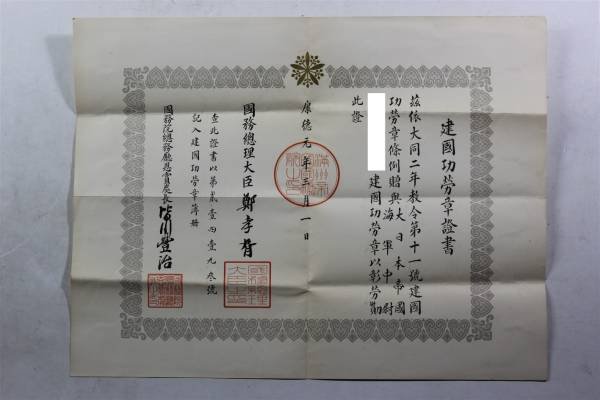 建國功勞章證書
茲依大同二年教令第十一號建國
功勞章條例贈與大日本帝國
海軍中尉
建國功勞章以彰勞勳
此證
康德元年三月一日
國務總理大臣 鄭孝胥
查此證書以第貳壹四壹九叁號
記入建國功勞章簿冊
國務院總務廳恩賞處長 皆川豐治